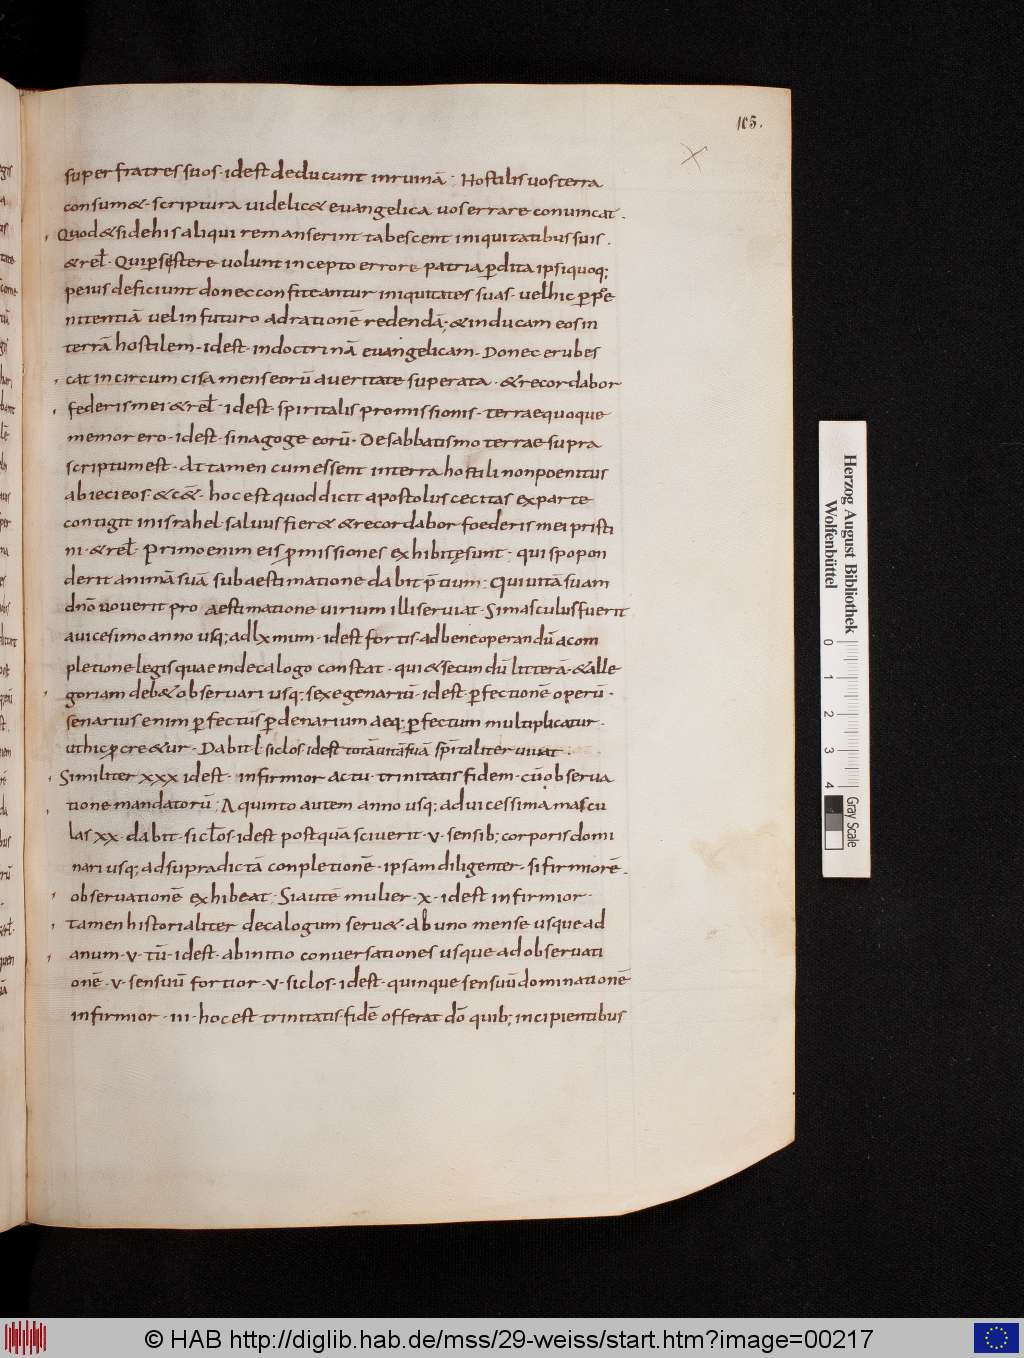 105.
super fratres suos · idest deducunt inruinā : Hostilis uos terra
consum& · scriptura uidelic& euangelica uos errare conuincat .
Quod & si de his aliqui remanserint tabescent iniquitatibus suis .
& rel̄ · Qui p̱sistere uolunt incepto errore patria p̱dita ipsi quoq;
peius deficiunt donec confiteantur iniquitates suas · uel hic p̱ pę
nitentiā uel in futuro ad rationē redendā; & inducam eos in
terrā hostilem · idest · indoctrinā euangelicam · Donec erubes
cat incircumcisa mens eorū a ueritate superata · & recordabor
federis mei & rel̄ · idest · spiritalis promissionis · terrae quoque
memor ero · idest · sinagoge eorū · De sabbatismo terrae supra
scriptum est · At tamen cum essent in terra hostili non poenitus
abieci eos · & c&̄ · hoc est quod dicit apostolus cecitas ex parte
contigit in israhel saluus fier& & recordabor foederis mei pristi
ni · & rel̄ · Primo enim eis p̱missiones exhibitę sunt · qui spopon
derit animā suā sub aestimatione dabit p̄tium : Qui uitā suam
dn̄o uouerit pro aestimatione uirium illi seruiat · Si masculus fuerit
a uicesimo anno usq; ad lx mum · idest fortis · ad bene operandū a com
pletione legis quae in decalogo constat · qui & secundū litterā · & alle
goriam deb& obseruari usq; sexegenariū · idest · p̱fectionē operū ·
senarius enim p̱fectus p̱ denarium aeq; p̱fectum multiplicatur ·
ut hic p̱cre&ur · Dabit l siclos idest totā uitā suā sp̄italiter uiuat ·
Similiter xxx idest · infirmior actu · trinitatis fidem · cū obserua
tione mandatorū ; A quinto autem anno usq; ad uicessimā mascu
las xx · dabit · siclos · idest postquā sciuerit · v · sensib; corporis domi
nari usq; ad supradictā conpletionē · ipsam diligenter · si firmiorē .
obseruationē exhibeat · Si autē mulier · x · idest infirmior ·
tamen historialiter decalogum seru& · ab uno mense usque ad
anum · v · tū · idest · ab initio conuersationes usque ad obseruati
onē · v · sensuū fortior · v · siclos · idest · quinque sensuū dominationē
infirmior · iii · hoc est trinitatis fidē offerat dō quib; incipientibus
Herzog August Bibliothek
Wolfenbüttel
0 1 2 3 4
Gray Scale
© HAB http://diglib.hab.de/mss/29-weiss/start.htm?image=00217